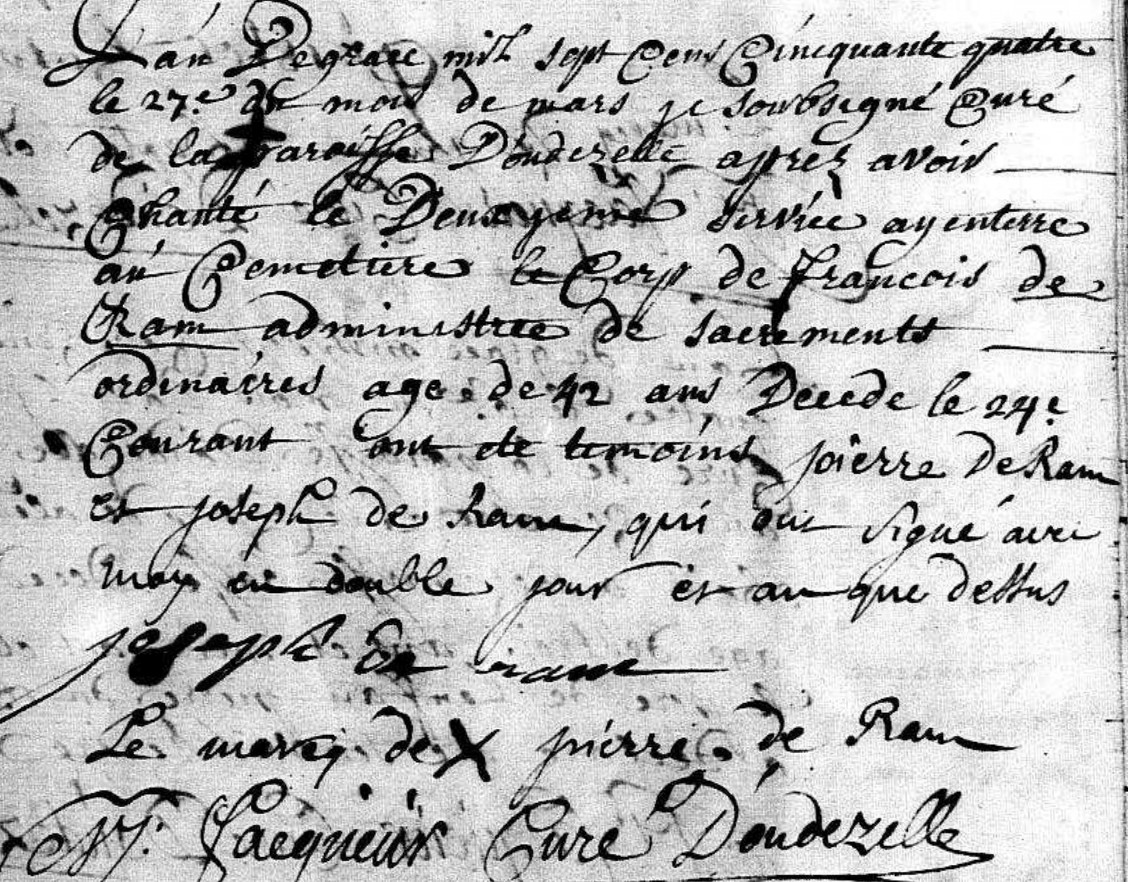 L'an De grace mil sept Cens Cincquante quatre
le 27.e du mois de mars je soubsegné Curé
de la paroisse Doudezelle aprez avoir
Chanté le Deuxyeme servíce ay enterre
au Cemetiere le Corp de francois de
Ram administree de sacrements
ordinaires age de 42 ans Decede le 24.e
Courant ont ete temoins pierre De Ram
et joseph de Ram, qui ont signé avec
moy en double jour et an que dessus
joseph de ram
Le marcq de X pierre de Ram
Curé Doudezelle